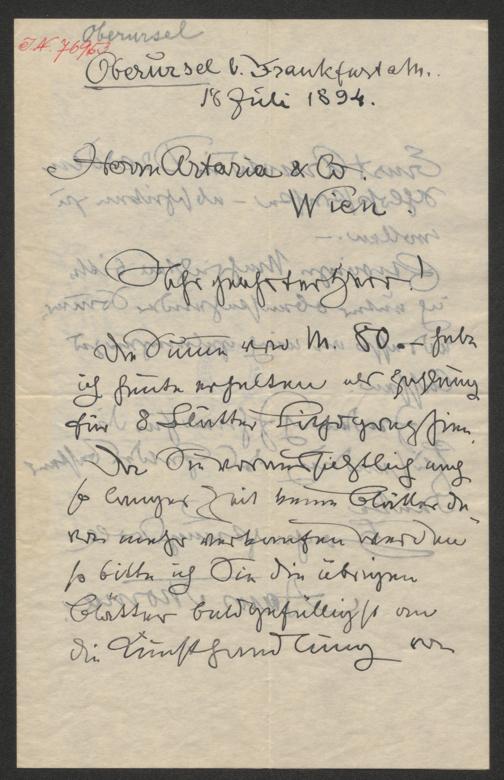 Oberursel
J.N. 76963
Oberursel b. Frankfurt a/M.
18 Juli 1894.
Herrn Artaria & Co.
Wien.
Sehr geehrter Herr!
Die Summe von M. 80.— habe
ich heute erhalten als Zahlung
für 8 Blätter Lithographien.
Da Sie voraussichtlich nach
so langer Zeit keine Blätter da-
von mehr verkaufen werden
so bitte ich Sie die übrigen
Blätter baldgefälligst an
die Kunsthandlung von